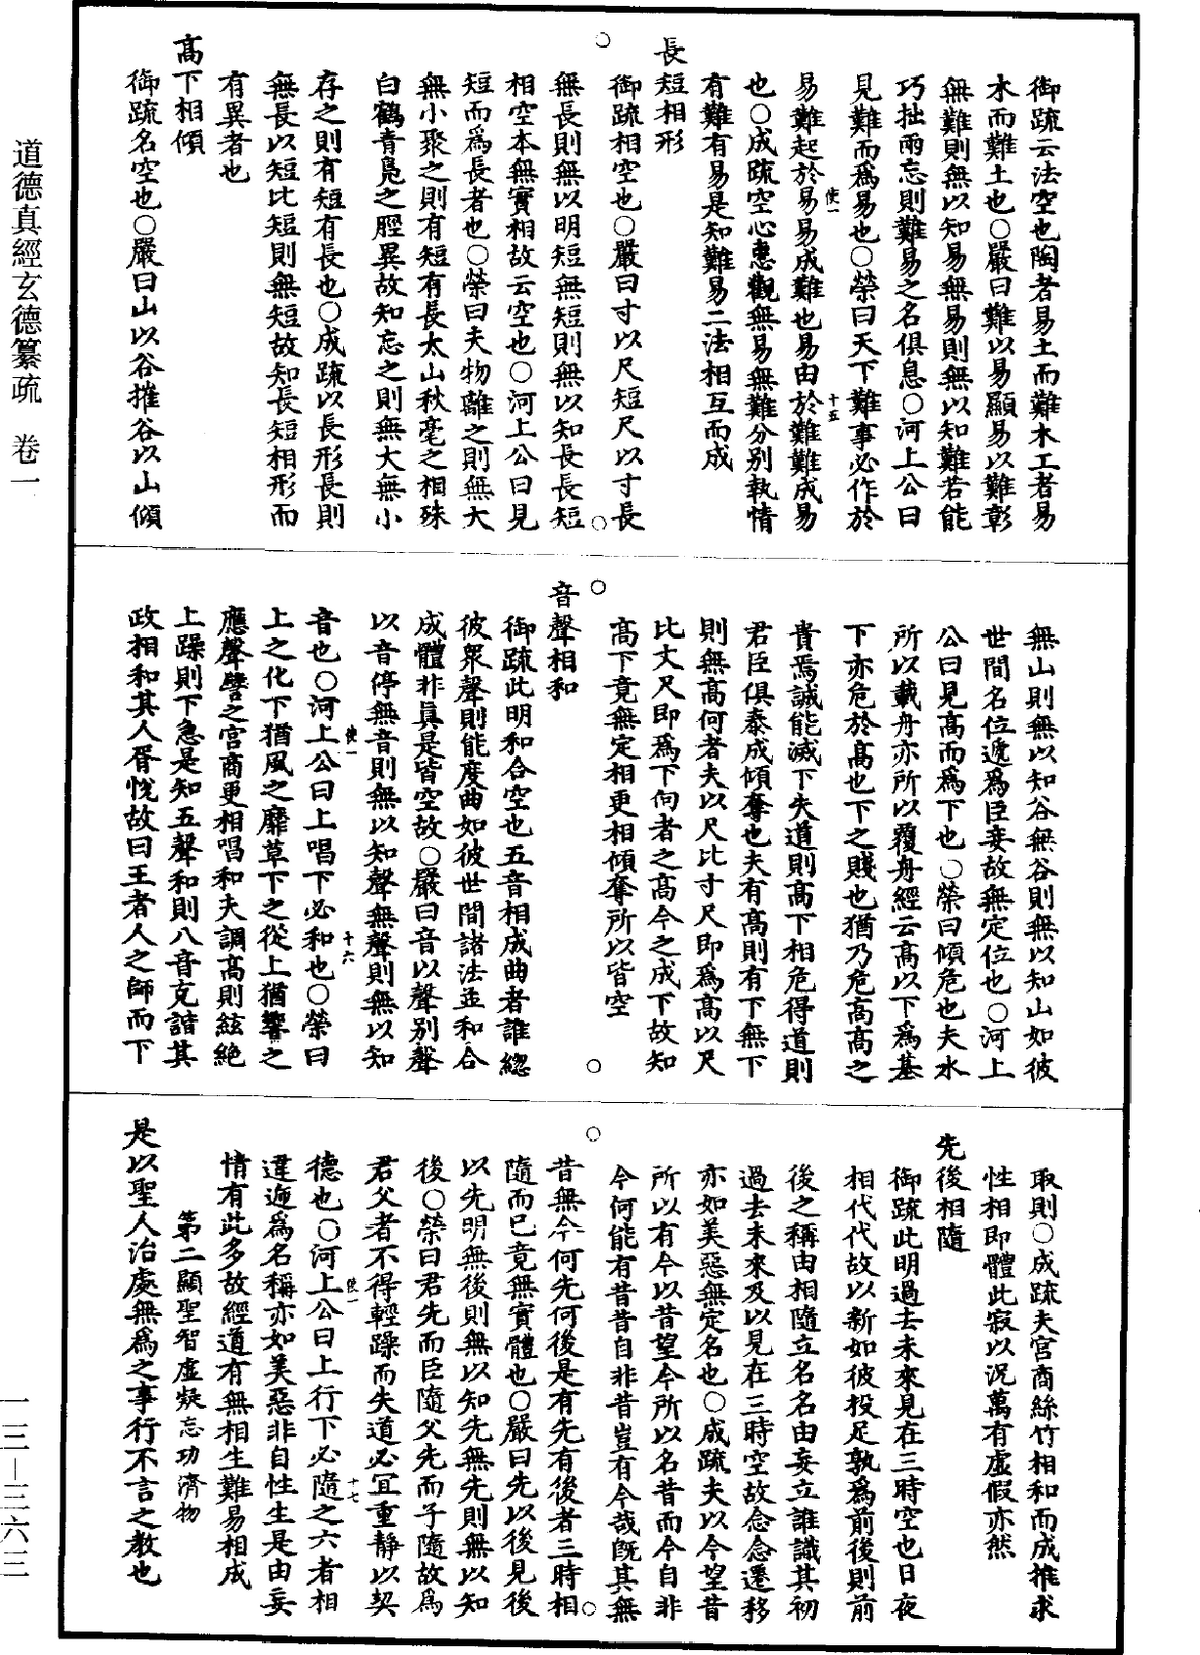 御疏云法空也陶者易土而難木工者易
木而難土也○嚴曰難以易顯易以難彰
無難則無以知易無易則無以知難若能
巧拙兩忘則難易之名俱息○河上公曰
見難而爲易也○榮曰天下難事必作於
使一 十五
易難起於易易成難也易由於難難成易
也○成疏空心慧觀無易無難分別執情
有難有易是知難易二法相互而成
長短相形
御疏相空也○嚴曰寸以尺短尺以寸長
無長則無以明短無短則無以知長長短
相空本無實相故云空也○河上公曰見
短而爲長者也○榮曰夫物離之則無大
無小聚之則有短有長太山秋毫之相殊
白鶴青鳧之脛異故知忘之則無大無小
存之則有短有長也○成疏以長形長則
無長以短比短則無短故知長短相形而
有異者也
高下相傾
御疏名空也○嚴曰山以谷摧谷以山傾
無山則無以知谷無谷則無以知山如彼
世間名位遞爲臣妾故無定位也○河上
公曰見高而爲下也○榮曰傾危也夫水
所以載舟亦所以覆舟經云高以下爲基
下亦危於高也下之賤也猶乃危高高之
貴焉誠能滅下失道則高下相危得道則
君臣俱泰成傾奪也夫有高則有下無下
則無高何者夫以尺比寸尺即爲高以尺
比丈尺即爲下向者之高今之成下故知
高下竟無定相更相傾奪所以皆空
音聲相和
御疏此明和合空也五音相成曲者誰總
彼衆聲則能度曲如彼世間諸法並和合
成體非眞是皆空故○嚴曰音以聲別聲
以音停無音則無以知聲無聲則無以知
使一 十六
音也○河上公曰上唱下必和也○榮曰
上之化下猶風之靡草下之從上猶響之
應聲譬之宮商更相唱和夫調高則絃絕
上躁則下急是知五聲和則八音克諧其
政相和其人胥悅故曰王者人之師而下
取則○成疏夫宮商絲竹相和而成推求
性相即體此寂以況萬有虛假亦然
先後相隨
御疏此明過去未來見在三時空也日夜
相代代故以新如彼投足孰爲前後則前
後之稱由相隨立名名由妄立誰識其初
過去未來及以見在三時空故念念遷移
亦如美惡無定名也○成疏夫以今望昔
所以有今以昔望今所以名昔而今自非
今何能有昔昔自非昔豈有今哉旣其無
昔無今何先何後是有先有後者三時相
隨而已竟無實體也○嚴曰先以後見後
以先明無後則無以知先無先則無以知
後○榮曰君先而臣隨父先而子隨故爲
君父者不得輕躁而失道必宜重靜以契
使一 十七
德也○河上公曰上行下必隨之六者相
違遞爲名稱亦如美惡非自性生是由妄
情有此多故經道有無相生難易相成
第二顯聖智虛凝忘功濟物
是以聖人治處無爲之事行不言之教也
道德真經玄德纂疏 卷一
一三—三六三